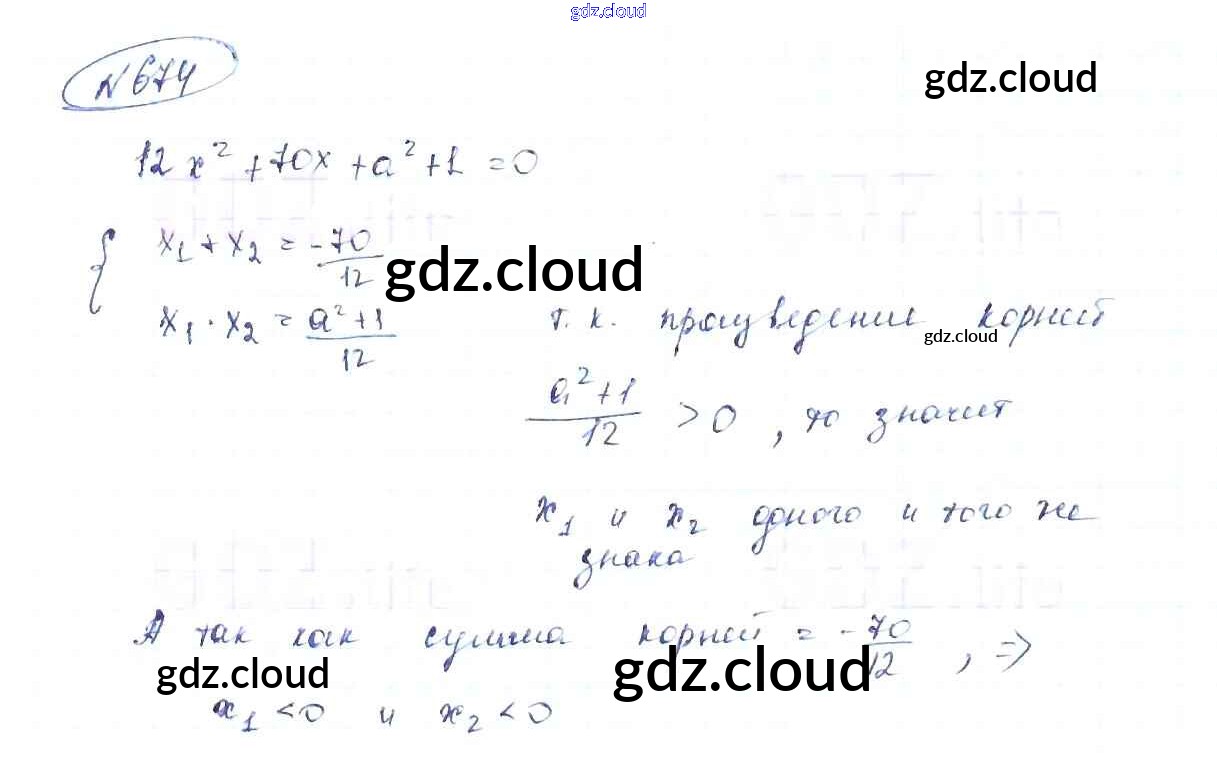 gdz.cloud
N 674
gdz.cloud
12x² + 70x + a² + 1 = 0
{ x₁ + x₂ = -70/12
gdz.cloud
x₁ · x₂ = (a² + 1)/12
т. к. произведение корней
gdz.cloud
(a² + 1)/12 > 0, то значит
x₁ и x₂ одного и того же
знака
А так как сумма корней = -70/12, ⇒
gdz.cloud
gdz.cloud
x₁ < 0 и x₂ < 0